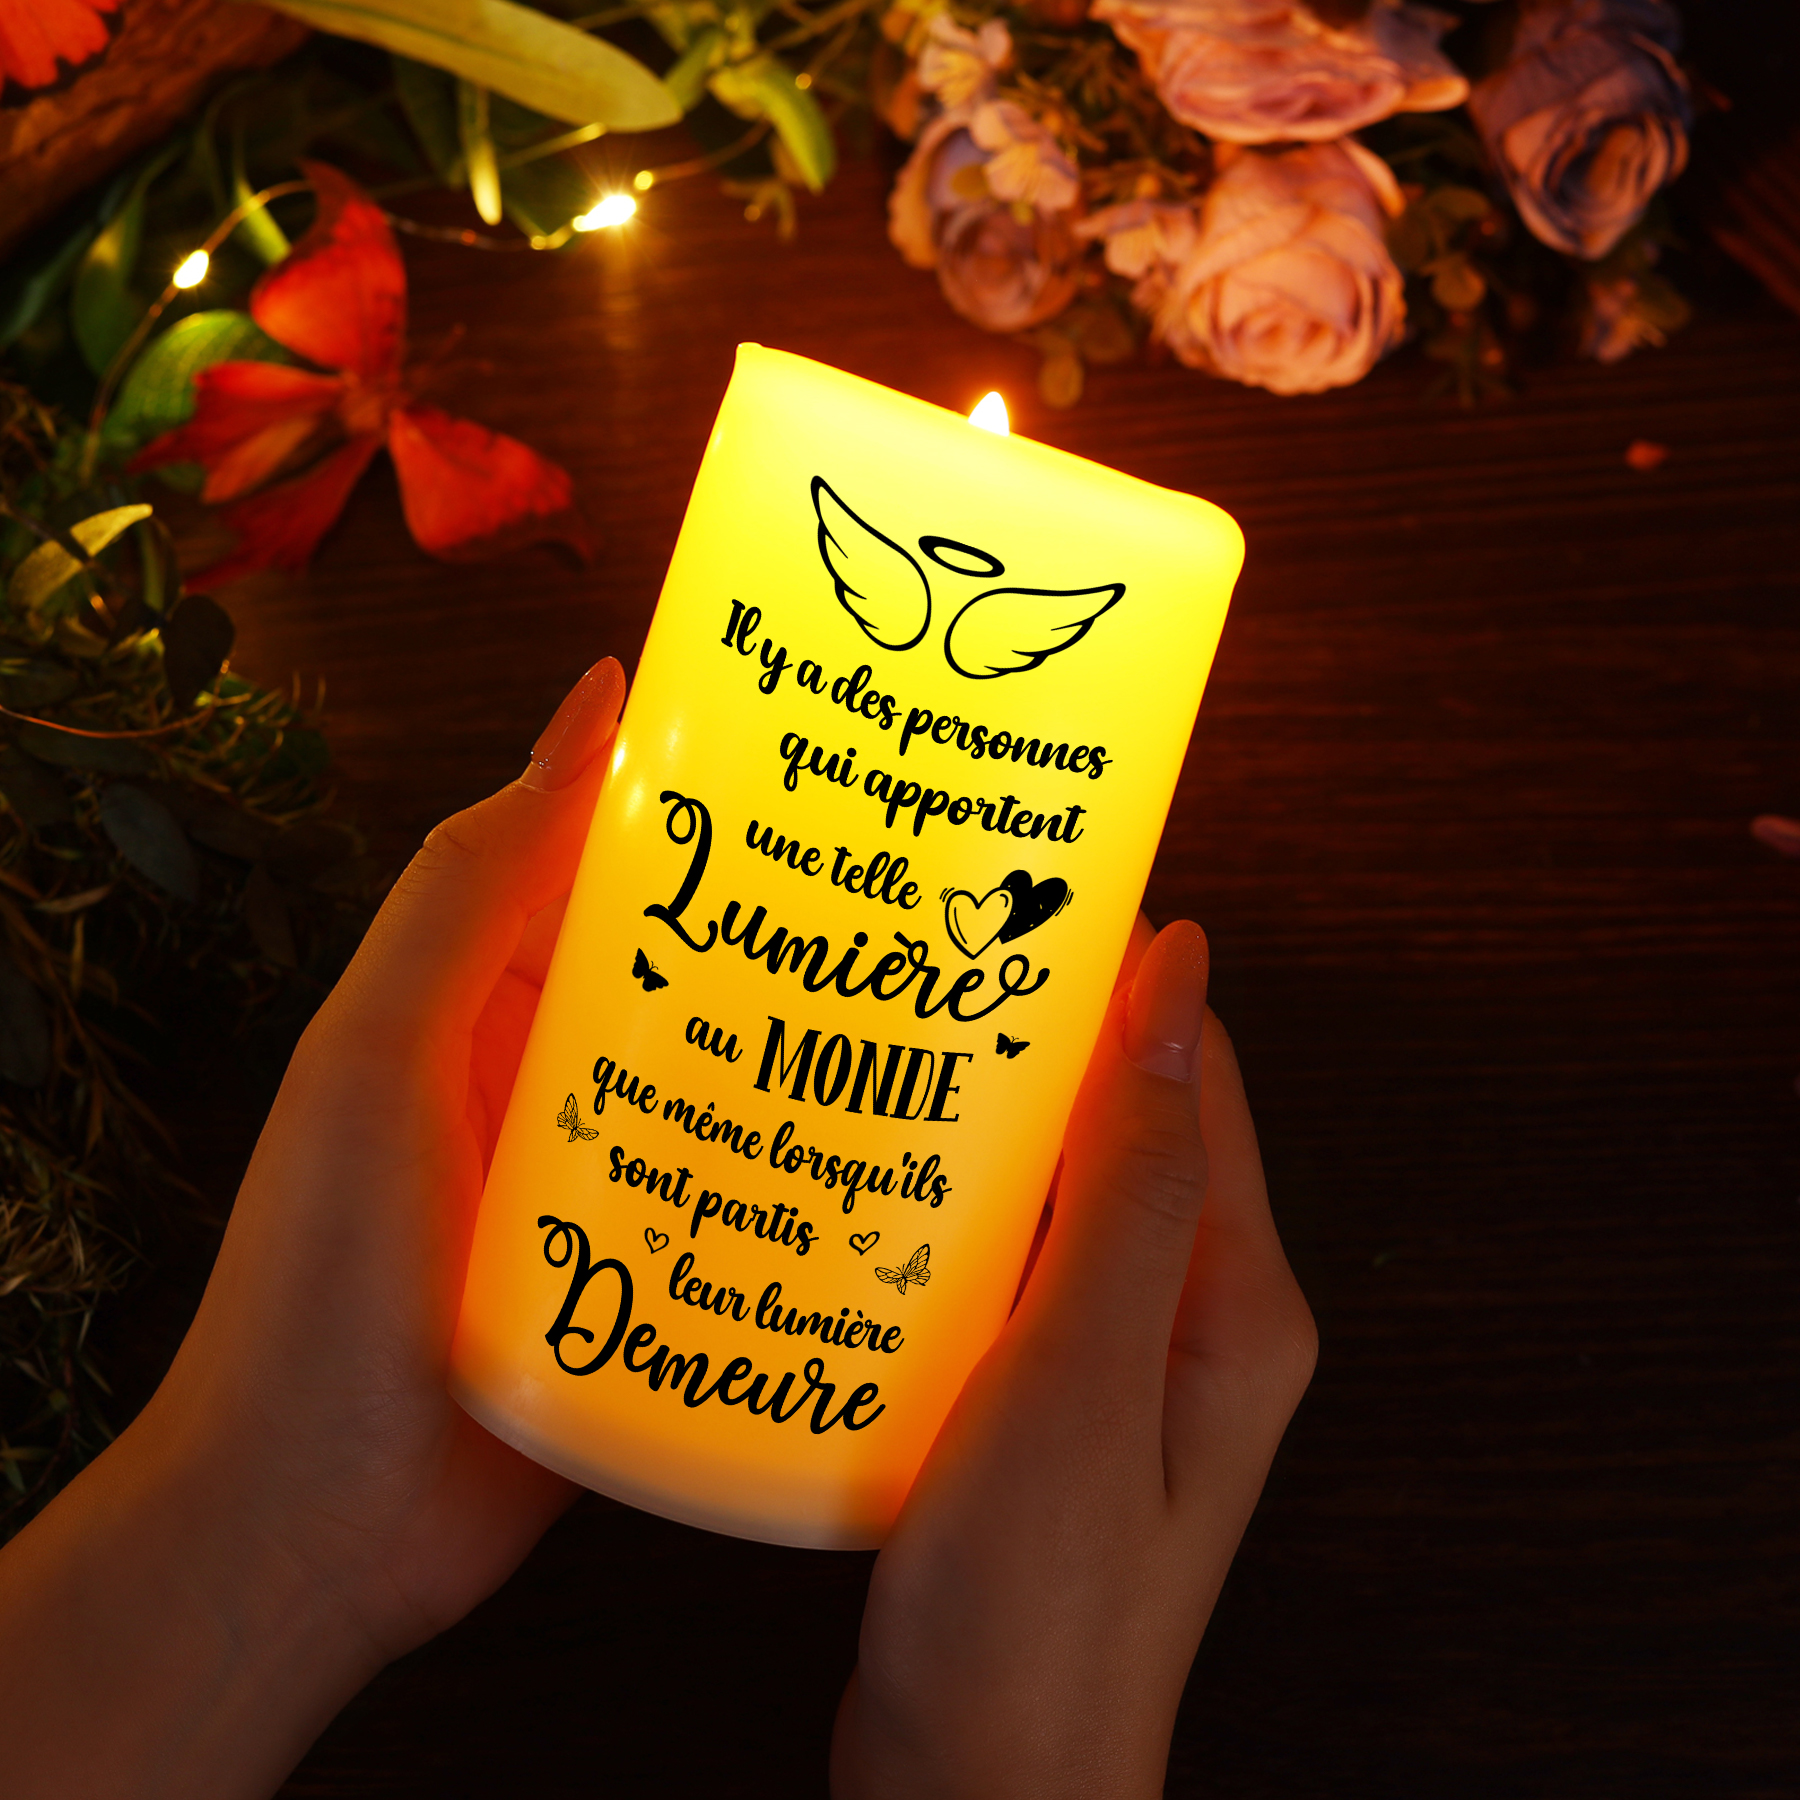 Il y a des personnes
qui apportent
une telle
Lumière
au MONDE
que même lorsqu'ils
sont partis
leur lumière
Demeure